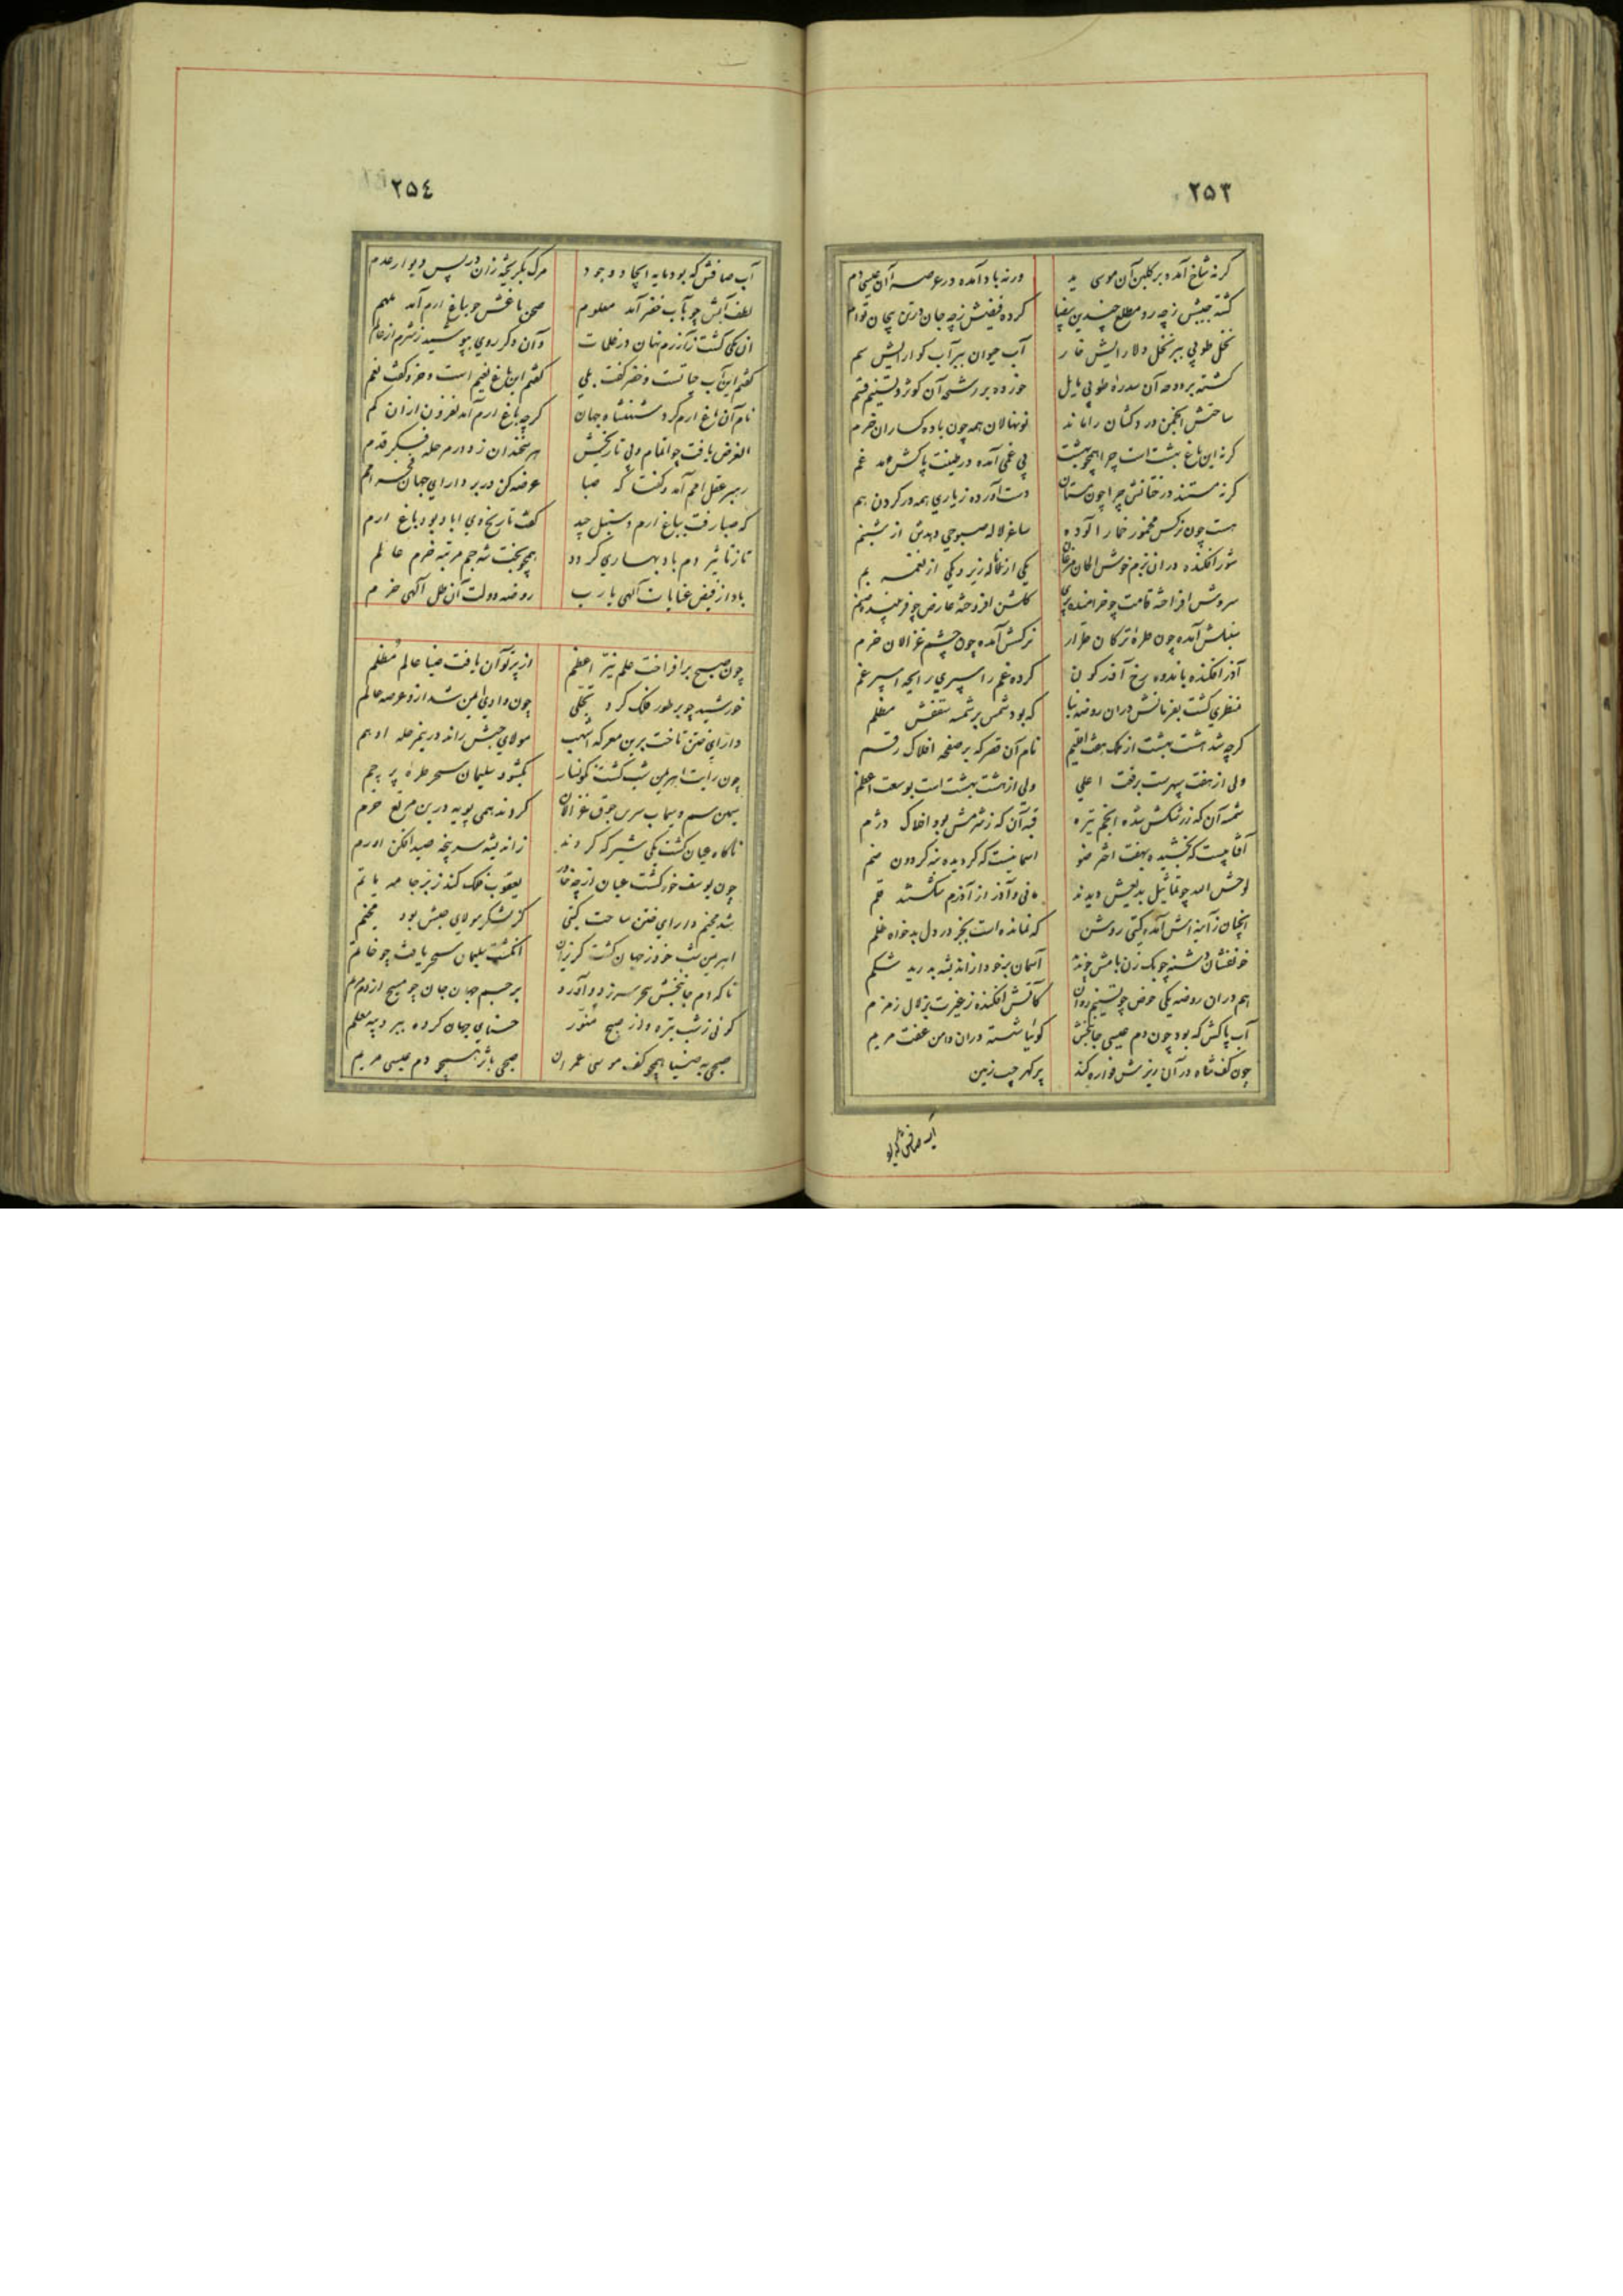 ٢٥٣
کرنه شاخ آمد و بر کلبن آن موسی ید ورنه باد آمده در عرصه آن عیسی دم
کشته جیبش زچه رو مطلع چندین بیضا کرده فیضش زچه جان در تن بیجان توام
نخل طوبی ببر نخل دلارایش خار آب حیوان ببر آب کوارایش سم
کشته بر دوحه آن سدره و طوبی مایل خورده بر رشحه آن کوثر و تسنیم قسم
ساحتش انجمن دردکشان را ماند نونهالان همه چون باده کساران خرم
کرنه این باغ بهشت است چرا همچو بهشت بی غمی آمده در طینت پاکش مدغم
کرنه مستند درختانش چرا چون مستان دست آورده زیاری همه در کردن هم
هست چون نرکس مخمور خمار آلوده ساغر لاله صبوحی دهدش از شبنم
شور افکنده در آن بزم خوش الحان مرغان یکی از ناله زیر و یکی از نغمه بم
سروش افراخته قامت چو خرامنده پری کلشن افروخته عارض چو فریبنده صنم
سنبلش آمده چون طره ترکان طرار نرکسش آمده چون چشم غزالان خرم
آذر افکنده باندوه رخ آذرکون کرده غم را سپری رایحه اسپرغم
منظری کشت بفرمانش در آن روضه بنا که بود شمس بر شمسه سقفش مظلم
کرچه شد هشت بهشت از یک بهشت اقلیم نام آن قصر که بر صفحه افلاک رقم
ولی از هفت سپهرست برفعت اعلی ولی از هشت بهشت است بوسعت اعظم
شمسه آن که زرشکش شده انجم تیره قبه آن که زشرمش بود افلاک دژم
آفتابیست که بخشیده بهفت اختر ضو آسمانیست که کردیده نه کردون ضم
لوحش الله چو تماثیل بدیعش دیدند مانی و آذر از آذرم شکستند قلم
آنچنان زآینه اش آمده کیتی روشن که نمانده است بجز در دل بدخواه ظلم
خونفشان دشنه چو یک زن بامش چونه آسمان بر خود از اندیشه بدرید شکم
هم در آن روضه یکی حوض چو تسنیم روان کاتش افکنده زغیرت بزلال زمزم
آب پاکش که بود چون دم عیسی جانبخش کوئیا شسته در آن دامن عفت مریم
چون کف شاه در آن ریزش فواره کند پر کهر جیب زمین
آب صافش که بو
٢٥٤
آب صافش که بود مایه ایجاد وجود مرک بکریخته زان در پس دیوار عدم
لطف آبش چو بآب خضر آمد معلوم صحن باغش چو بباغ ارم آمد ملهم
آن یکی کشت زآزرم نهان در ظلمات وان دکر روی بپوشید زشرم از عالم
کفتم این آب حیاتست و خضر کفت بلی کفتم این باغ نعیم است و خرد کفت نعم
نام آن باغ ارم کرد شهنشاه جهان کرچه باغ ارم آمد بفزون از آن کم
الغرض یافت چو اتمام و پی تاریخش هر سخندان زد در مرحله فکر قدم
رهبر عقل امم آمد و کفتا که صبا عرضه کن در بر دارای جهان فخر امم
که صبا رفت بباغ ارم و سنبل چید کفت تاریخ وی اباد بود باغ ارم
تا زتاثیر دم باد بهاری کردد همچو بخت شه جم مرتبه خرم عالم
باد از فیض عنایات آلهی یارب روضه دولت آن ظل آلهی خرم
چون صبح برافراخت علم نیر اعظم از پرتو آن یافت ضیا عالم مظلم
خورشید چو بر طور فلک کرد تجلی چون وادی ایمن شد ازو عرصه عالم
دارای ختن تاخت برین معرکه اشهب مولای حبش راند درین مرحله ادهم
چون رایت اهرمن شب کشت نکونسار بکشود سلیمان سحر طره پرچم
سیمن سم و سیماب سرین جوق غزالان کردند همی پویه درین مربع خرم
ناکاه عیان کشت یکی شیر که کردند زاندیشه سر پنجه صیدافکن او رم
چون یوسف خور کشت عیان از چه خاور یعقوب فلک کند زبر جامه ماتم
شد مخیم دارای ختن ساحت کیتی کز لشکر مولای حبش بود مخیم
اهرمن شب خود زجهان کشت کریزان انکشت سلیمان سحر یافت چو خاتم
تا که دم جانبخش سحر سرزد و آورد بر جسم جهان جان چو مسیح از دم مریم
کوئی زشب تیره و از صبح منور حسنای جهان کرده ببر دیبه معلم
صبحی به ضیا همچو کف موسی عمران صبحی باثر همچو دم عیسی مریم